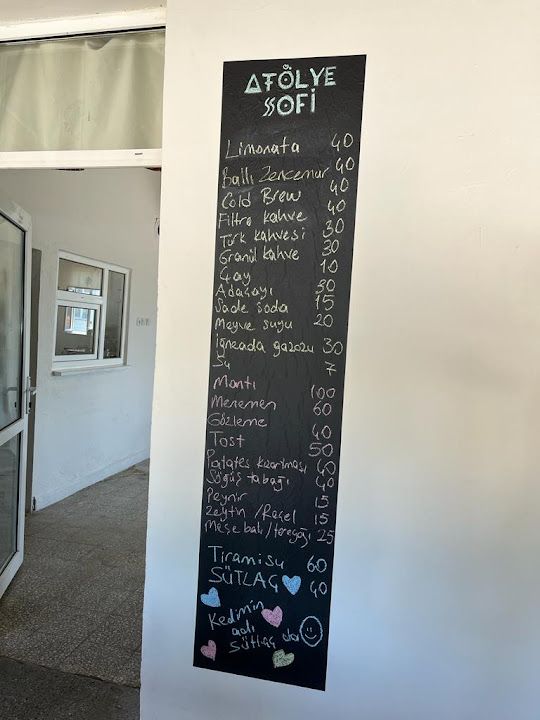 ATÖLYE
SSOFİ
Limonata 40
Ballı Zencefil 40
Cold Brew 40
Filtre kahve 40
Türk kahvesi 30
Granül kahve 30
Çay 10
Adaçayı 30
Sade soda 15
Meyve suyu 20
İğneada gazozu 30
Su 7
Mantı 100
Menemen 60
Gözleme 40
Tost 50
Patates kızartması 40
Söğüş tabağı 40
Peynir 15
Zeytin / Reçel 15
Meşe balı / tereyağı 25
Tiramisu 60
SÜTLAÇ 40
Kedimin
adı
Sütlaç